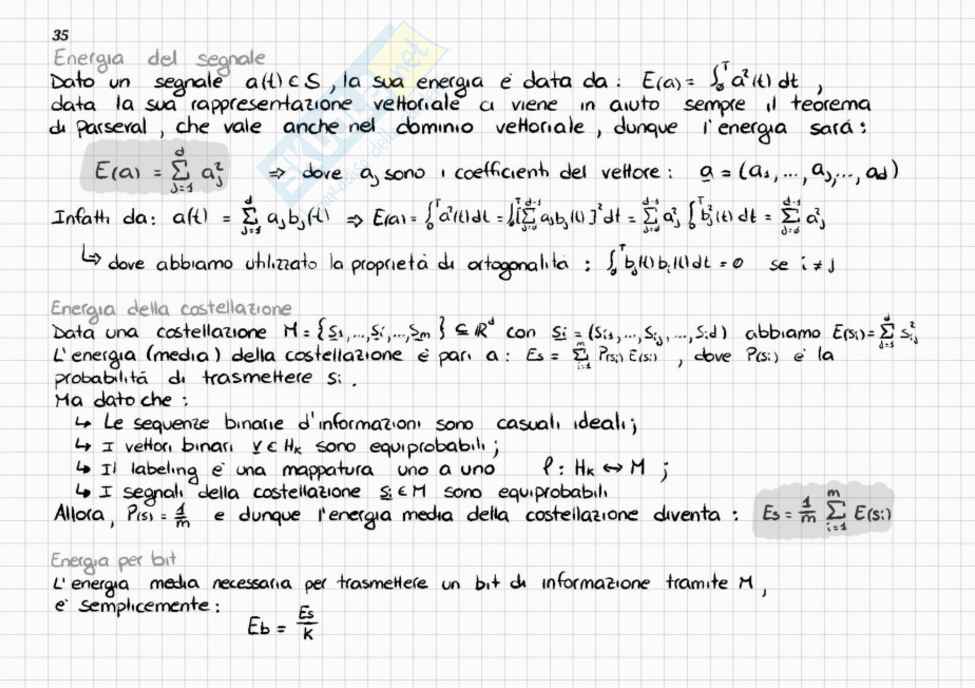 35
Energia del segnale
Dato un segnale a(t) ∈ S, la sua energia è data da: E(a) = ∫₀ᵀ a²(t) dt ,
data la sua rappresentazione vettoriale ci viene in aiuto sempre il teorema
di Parseval, che vale anche nel dominio vettoriale, dunque l'energia sará:
E(a) = Σ_{j=1}^{d} a_j² ⇒ dove a_j sono i coefficienti del vettore: a = (a₁, ..., a_j, ..., a_d)
Infatti da: a(t) = Σ_{j=1}^{d} a_j b_j(t) ⇒ E(a) = ∫₀ᵀ a²(t) dt = ∫₀ᵀ [Σ_{j=0}^{d-1} a_j b_j(t)]² dt = Σ_{j=0}^{d-1} a_j² ∫₀ᵀ b_j²(t) dt = Σ_{j=0}^{d-1} a_j²
↳ dove abbiamo utilizzato la proprietà di ortogonalità : ∫₀ᵀ b_j(t) b_i(t) dt = 0 se i ≠ j
Energia della costellazione
Data una costellazione M = {s₁, ..., sᵢ, ..., s_m} ⊆ ℝᵈ con sᵢ = (sᵢ₁, ..., sᵢⱼ, ..., sᵢd) abbiamo E(sᵢ) = Σ_{j=1}^{d} sᵢⱼ²
L'energia (media) della costellazione è pari a: Es = Σ_{i=1}^{m} P(sᵢ) E(sᵢ) , dove P(sᵢ) è la
probabilità di trasmettere sᵢ .
Ma dato che :
↳ Le sequenze binarie d'informazioni sono casuali ideali;
↳ I vettori binari v ∈ H_k sono equiprobabili;
↳ Il labeling è una mappatura uno a uno ℓ : H_k ↔ M ;
↳ I segnali della costellazione sᵢ ∈ M sono equiprobabili
Allora, P(s) = 1/m e dunque l'energia media della costellazione diventa : Es = 1/m Σ_{i=1}^{m} E(sᵢ)
Energia per bit
L'energia media necessaria per trasmettere un bit di informazione tramite M ,
e' semplicemente:
Eb = Es/k